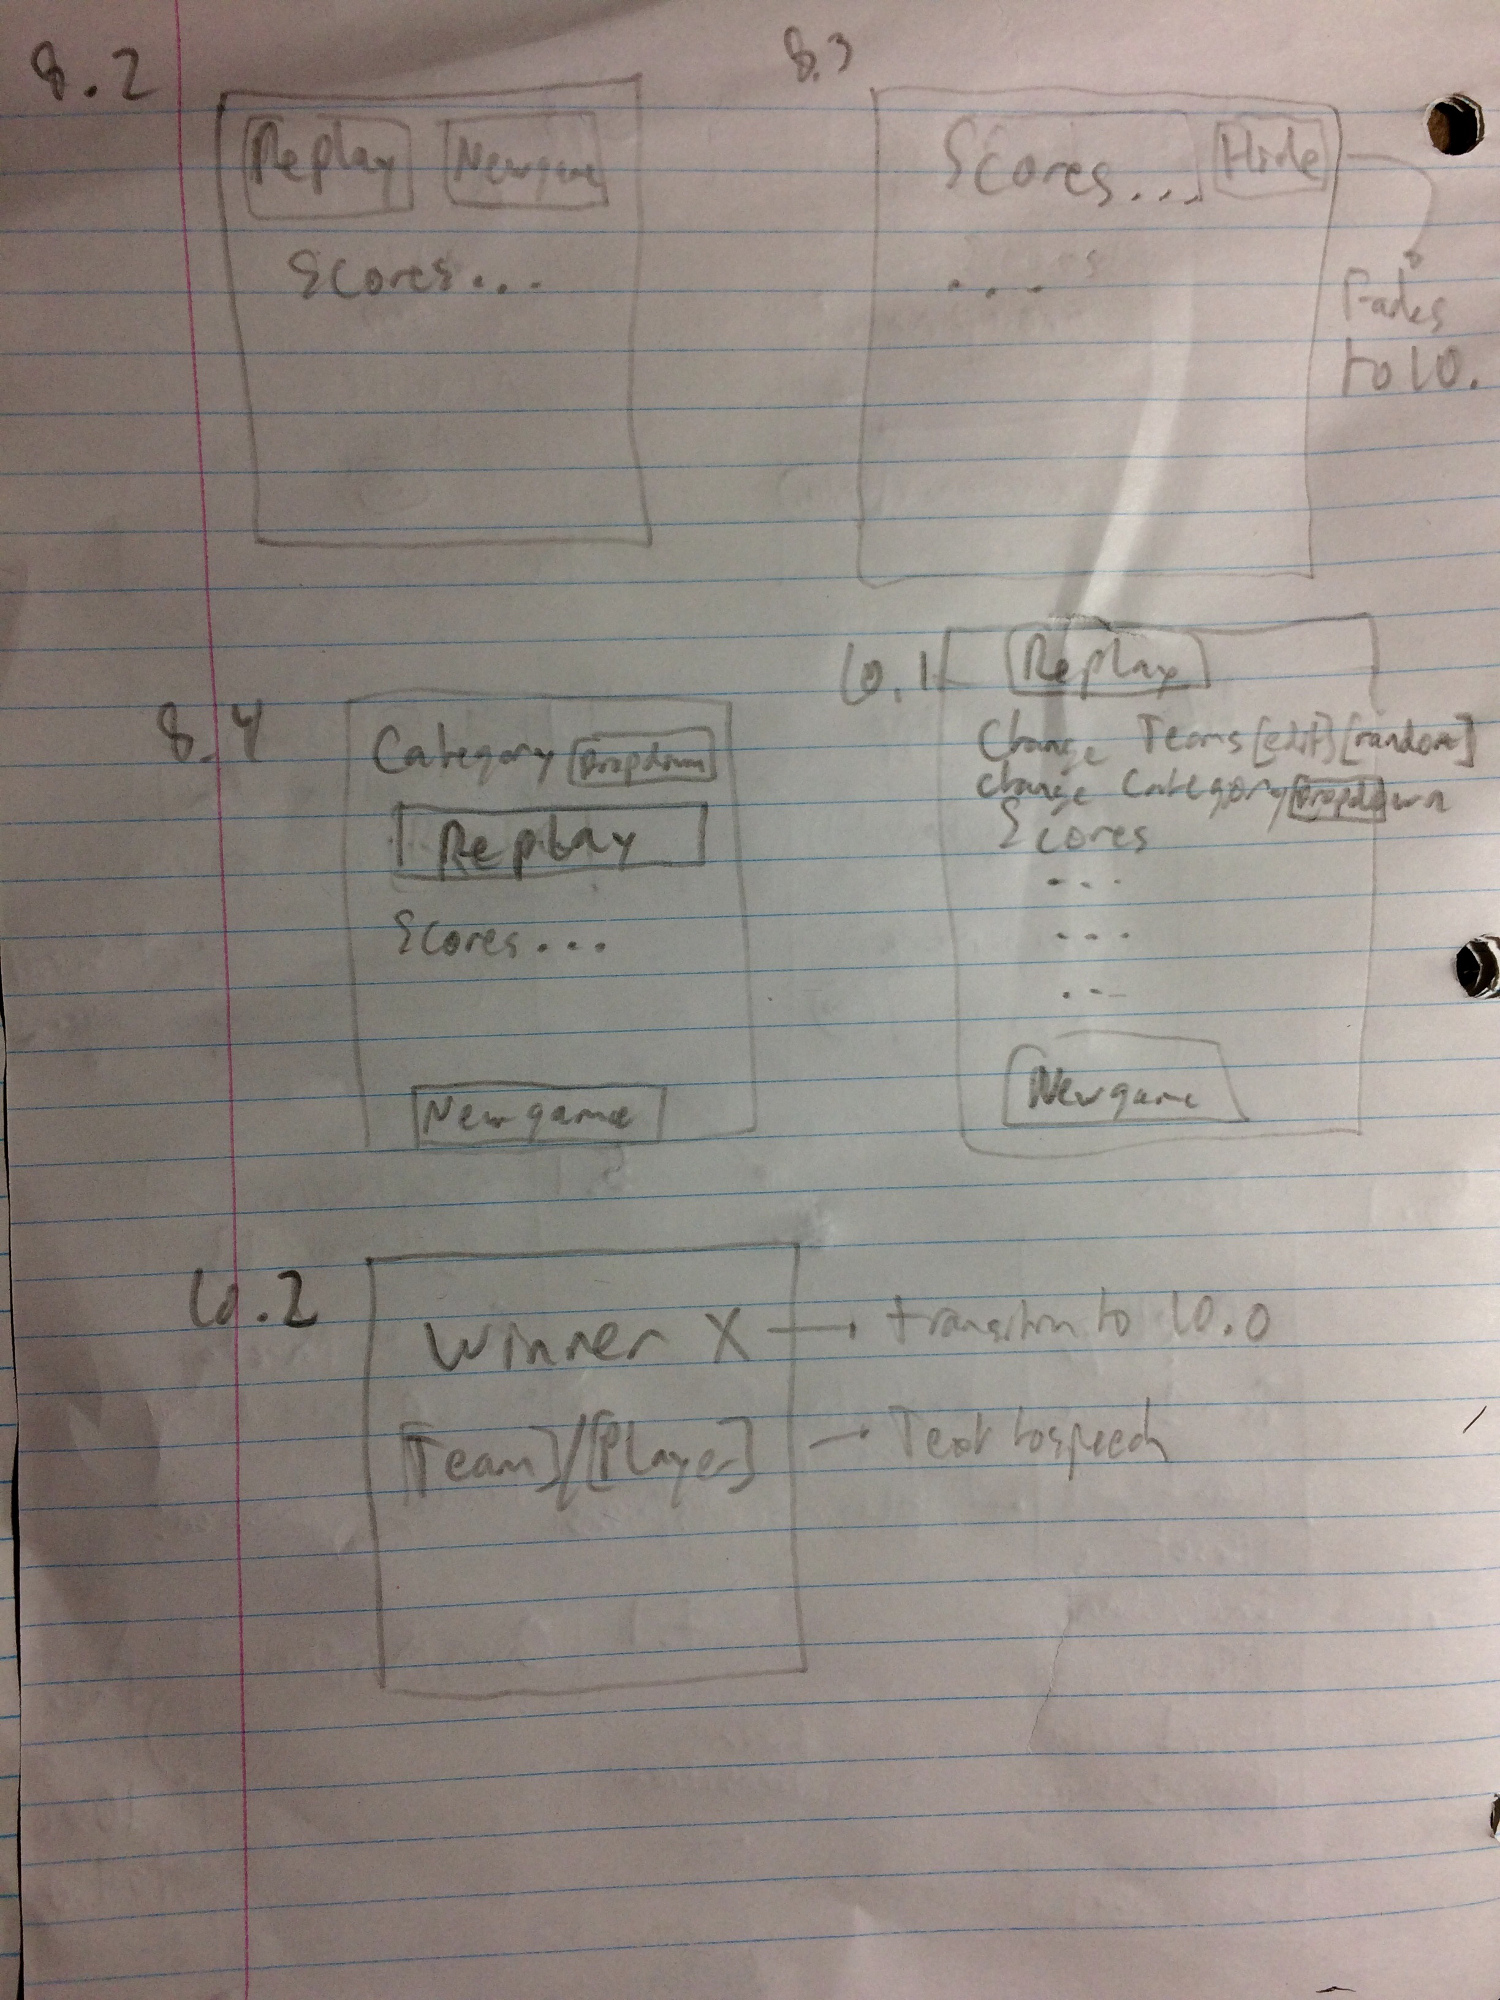 8.2
Replay Newgame
Scores...
8.3
Scores... Hide
...
Fades
to 10.
8.4
Category Dropdown
Replay
Scores...
New game
10.1
Replay
Change Teams [edit] [random]
change Category Dropdown
Scores
...
...
...
New game
10.2
Winner X → transition to 10.0
[Team]/[Player] → Text to speech